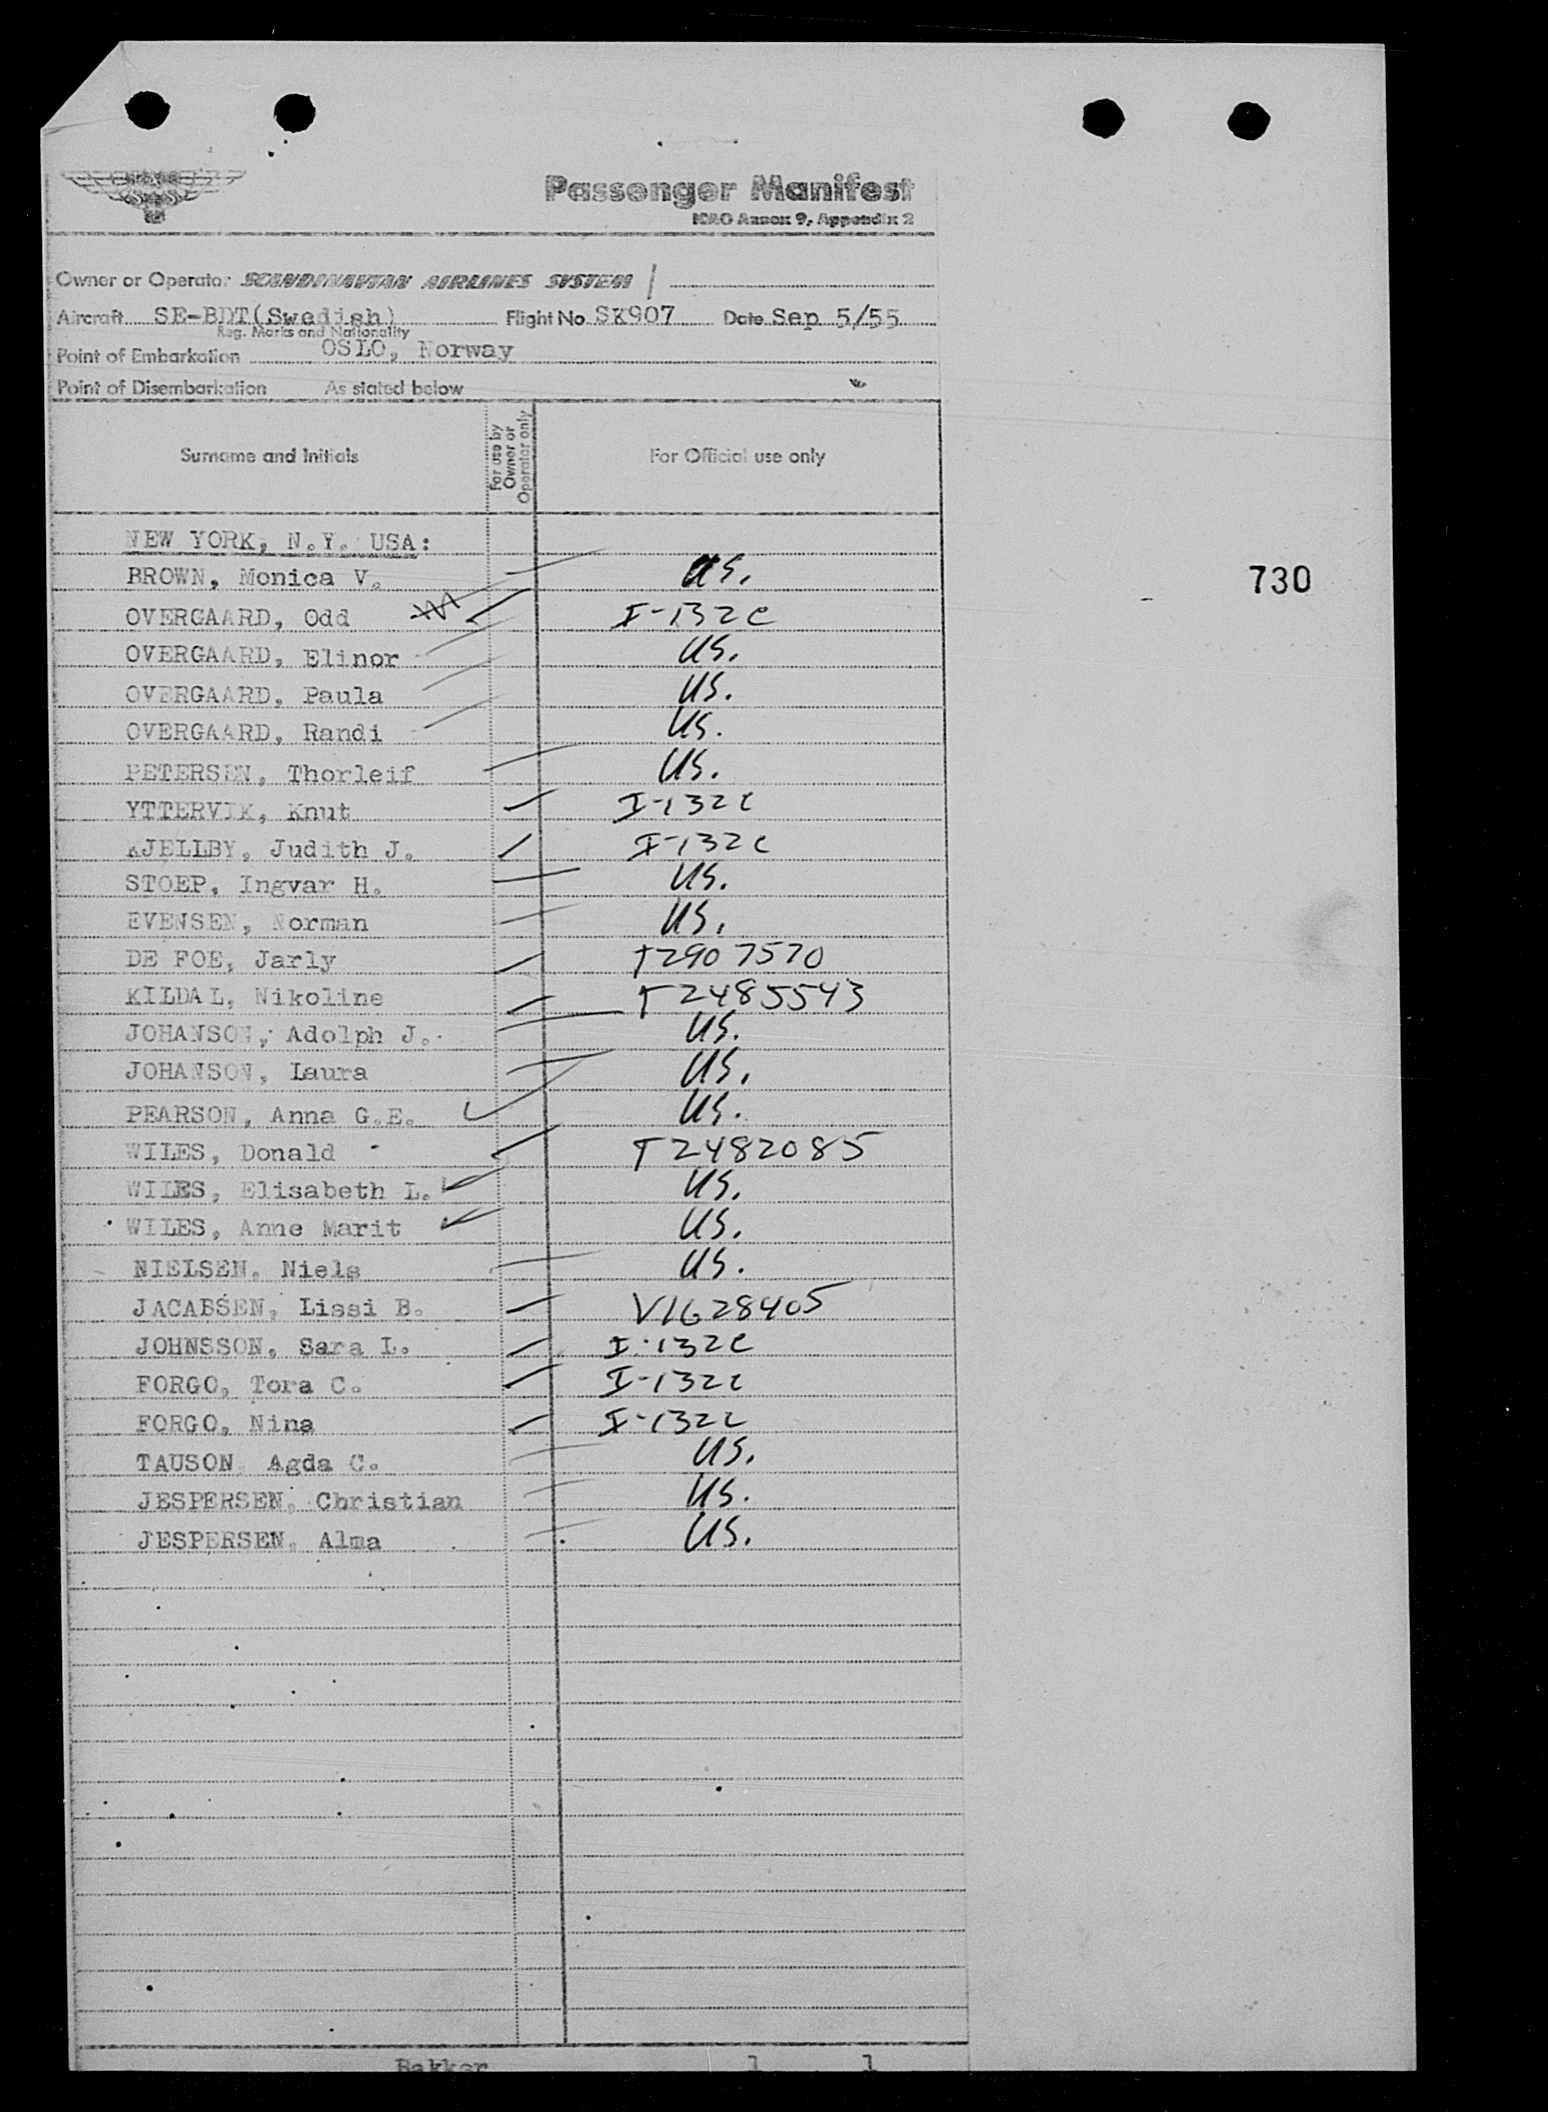 Passenger Manifest
ICAO Annex 9, Appendix 2
Owner or Operator SCANDINAVIAN AIRLINES SYSTEM
Aircraft SE-BDT(Swedish) Flight No. SK907 Date Sep 5/55
Reg. Marks and Nationality
Point of Embarkation OSLO, Norway
Point of Disembarkation As stated below
Surname and Initials For use by Owner or Operator only For Official use only
NEW YORK, N.Y. USA:
BROWN, Monica V. US.
730
OVERGAARD, Odd I-132c
OVERGAARD, Elinor US.
OVERGAARD, Paula US.
OVERGAARD, Randi US.
PETERSEN, Thorleif US.
YTTERVIK, Knut I-132c
KJELLBY, Judith J. I-132c
STOEP, Ingvar H. US.
EVENSEN, Norman US.
DE FOE, Jarly T2907570
KILDAL, Nikoline T2485543
JOHANSON, Adolph J. US.
JOHANSON, Laura US.
PEARSON, Anna G.E. US.
WILES, Donald T2482085
WILES, Elisabeth L. US.
WILES, Anne Marit US.
NIELSEN, Niels US.
JACABSEN, Lissi B. V1628405
JOHNSSON, Sara L. I-132c
FORGO, Tora C. I-132c
FORGO, Nina I-132c
TAUSON, Agda C. US.
JESPERSEN, Christian US.
JESPERSEN, Alma US.
Bakker 1 1